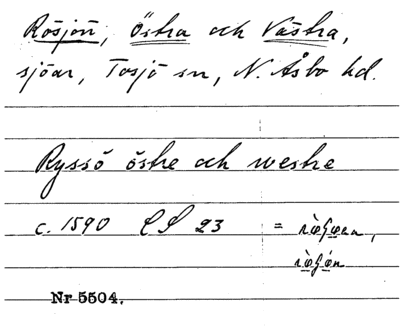 Rösjön, Östra och Västra,
sjöar, Tosjö sn, N. Åsbo hd.
Ryssö östre och westre
c. 1590 CS 23 =
Nr 5504.